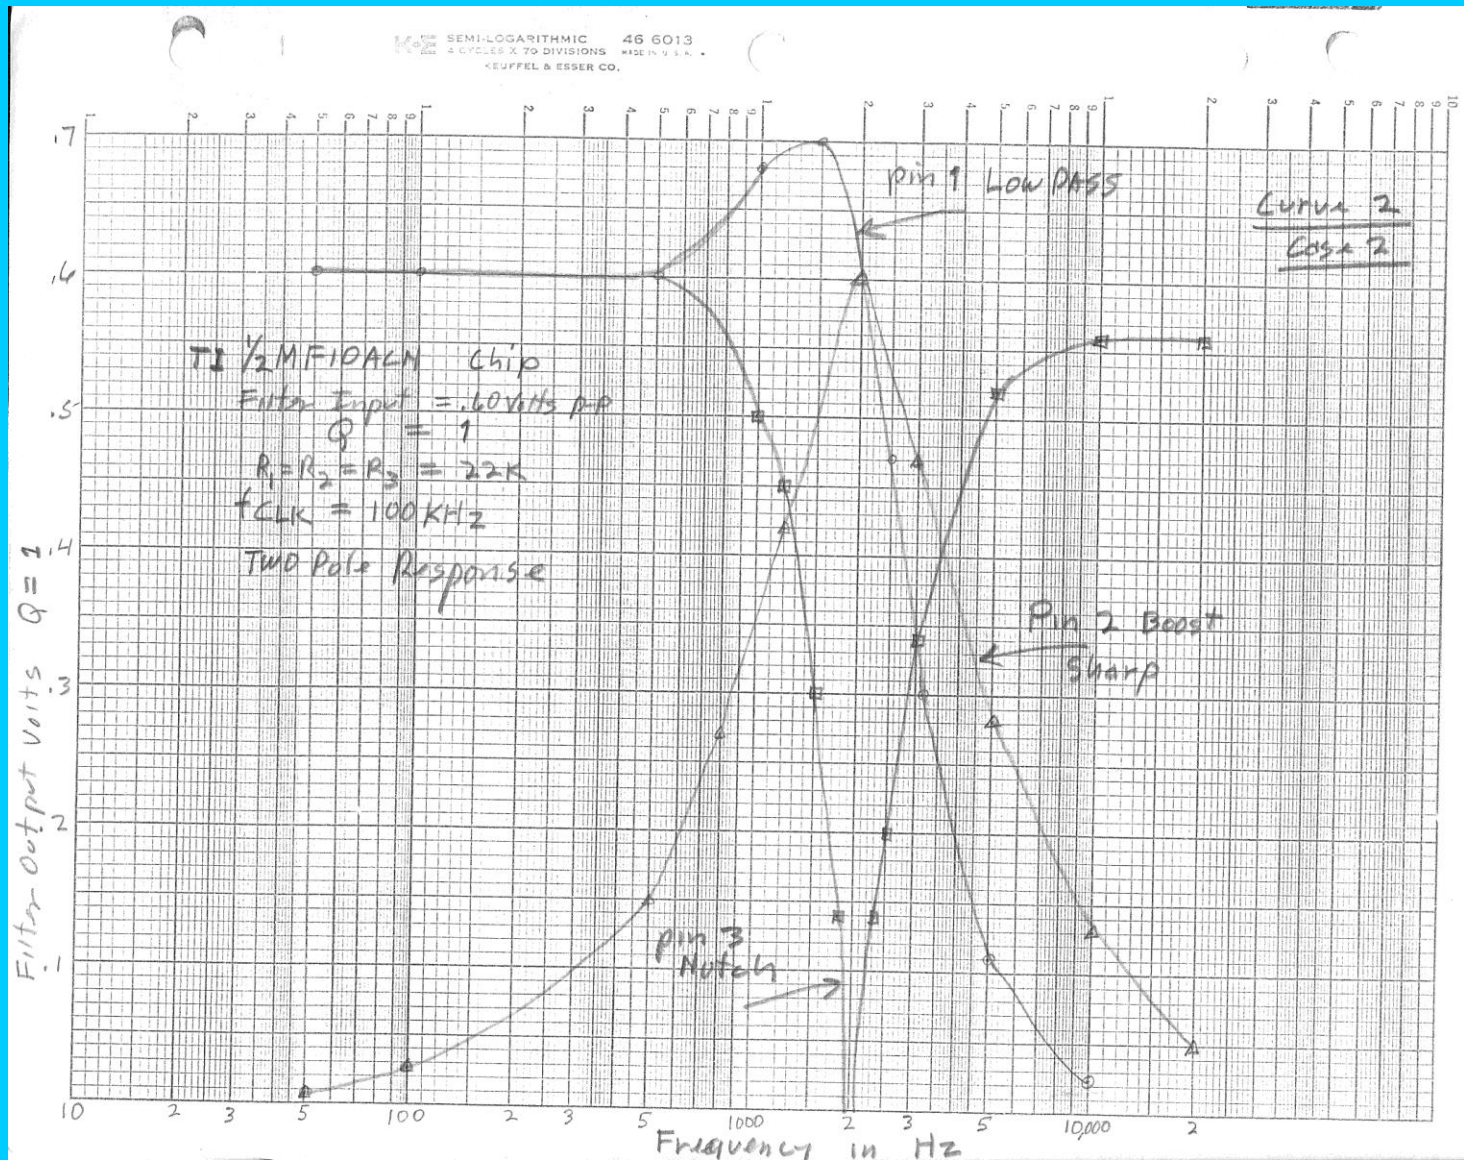 K+E SEMI-LOGARITHMIC 46 6013
4 CYCLES X 70 DIVISIONS MADE IN U.S.A.
KEUFFEL & ESSER CO.
1 2 3 4 5 6 7 8 9 1 2 3 4 5 6 7 8 9 1 2 3 4 5 6 7 8 9 1 2 3 4 5 6 7 8 9 10
.7
pin 1 LOW PASS
Curve 2
Case 2
.6
TI 1/2 MF10ACN Chip
Filter Input = .60 Volts p-p
.5
Q = 1
R1 = R2 = R3 = 22K
fCLK = 100 KHz
.4
Two Pole Response
Pin 2 Boost
Sharp
.3
.2
pin 3
Notch
.1
Filter Output Volts Q = 1
10 2 3 5 100 2 3 5 1000 2 3 5 10,000 2
Frequency in Hz